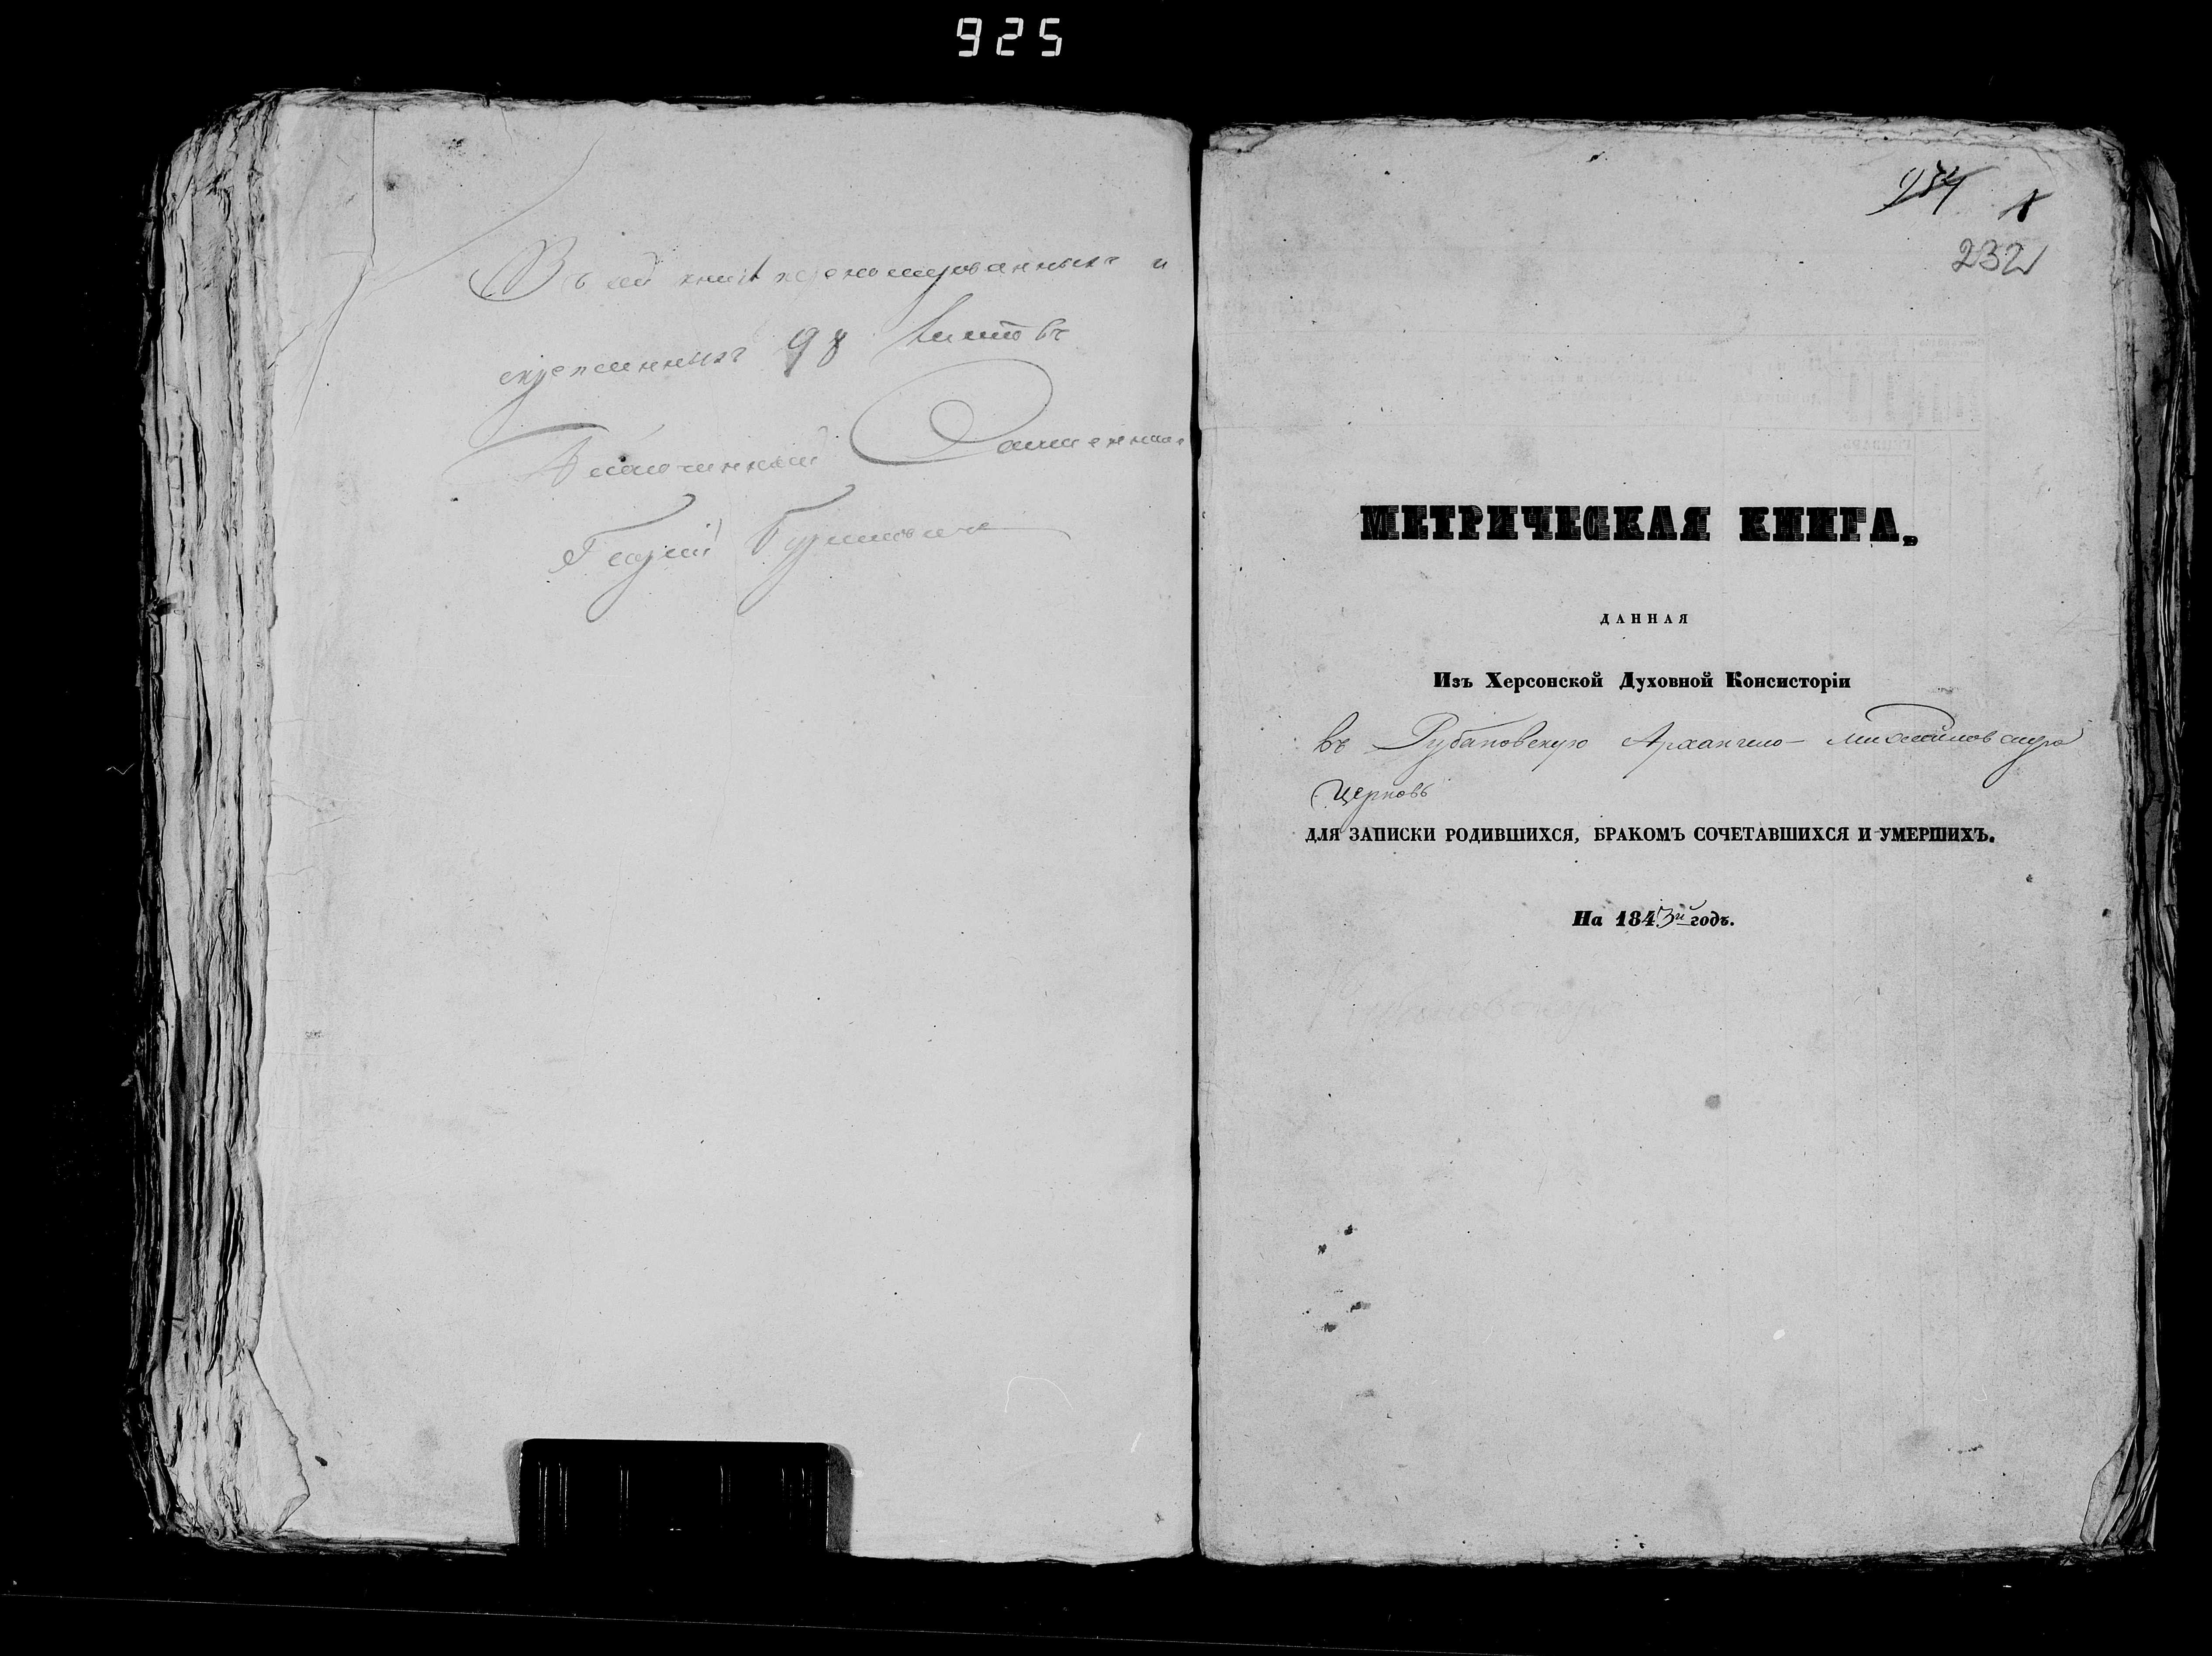 925
Въ сей книгѣ перенумерованныхъ и
скрепленныхъ 98 листовъ
Благочинный Священник
Георгій
232
МЕТРИЧЕСКАЯ КНИГА,
ДАННАЯ
Изъ Херсонской Духовной Консисторіи
въ Рубановскую Архангело-Михайловскую
Церковь
ДЛЯ ЗАПИСКИ РОДИВШИХСЯ, БРАКОМЪ СОЧЕТАВШИХСЯ И УМЕРШИХЪ.
На 1843й годъ.